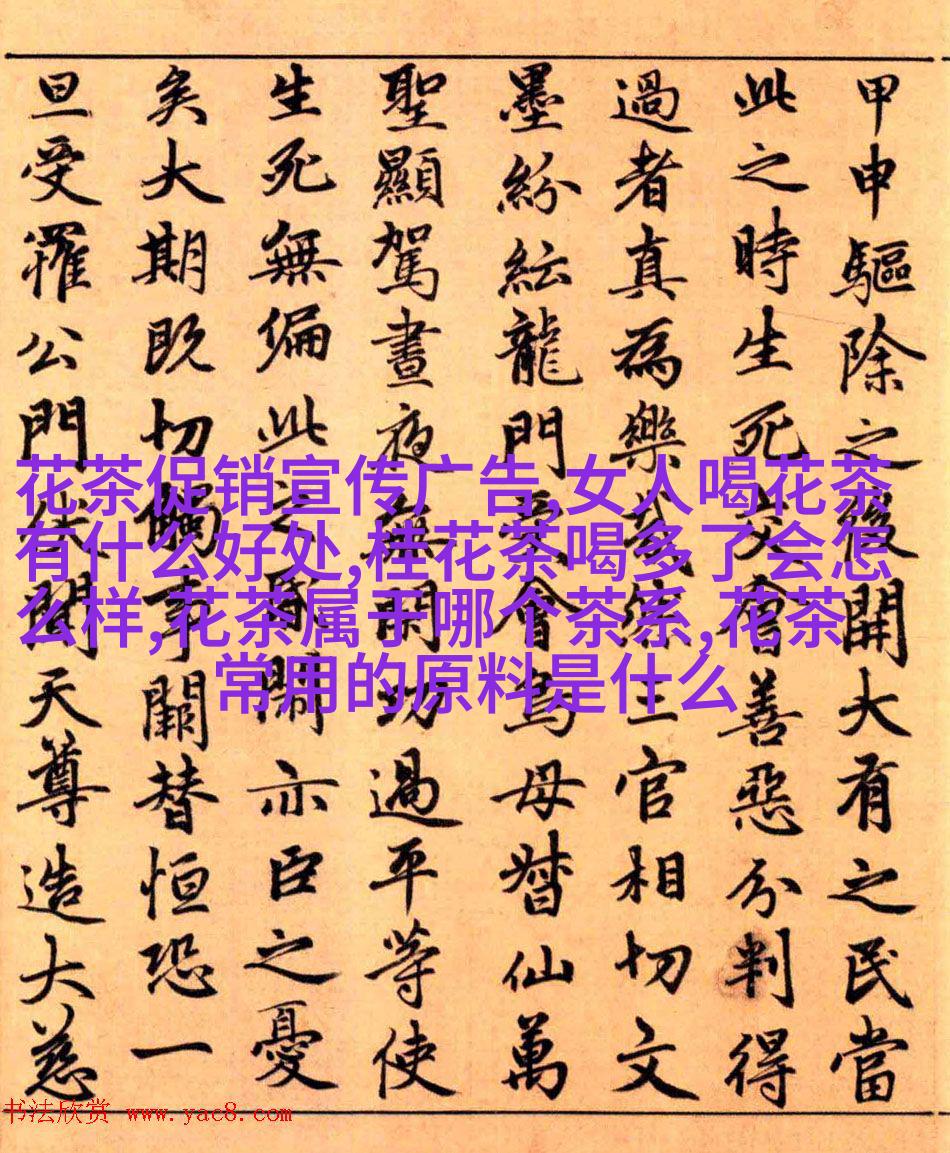 甲申驅除之後開大有之民當
此之時生死交會善惡分判得
過者真為樂三官相切文
墨紛紜龍門受會鳥母督仙萬
聖顯駕晝夜無閑功過平等使
生死無偏此之所關亦臣之憂
矣大期既切觸事闕替恒恐一
旦受罹公門伏聞天尊造大慈
花茶促销宣传广告,女人喝花茶
有什么好处,桂花茶喝多了会怎
么样,花茶属于哪个茶系,花茶
常用的原料是什么
书法欣赏 www.yac8.com